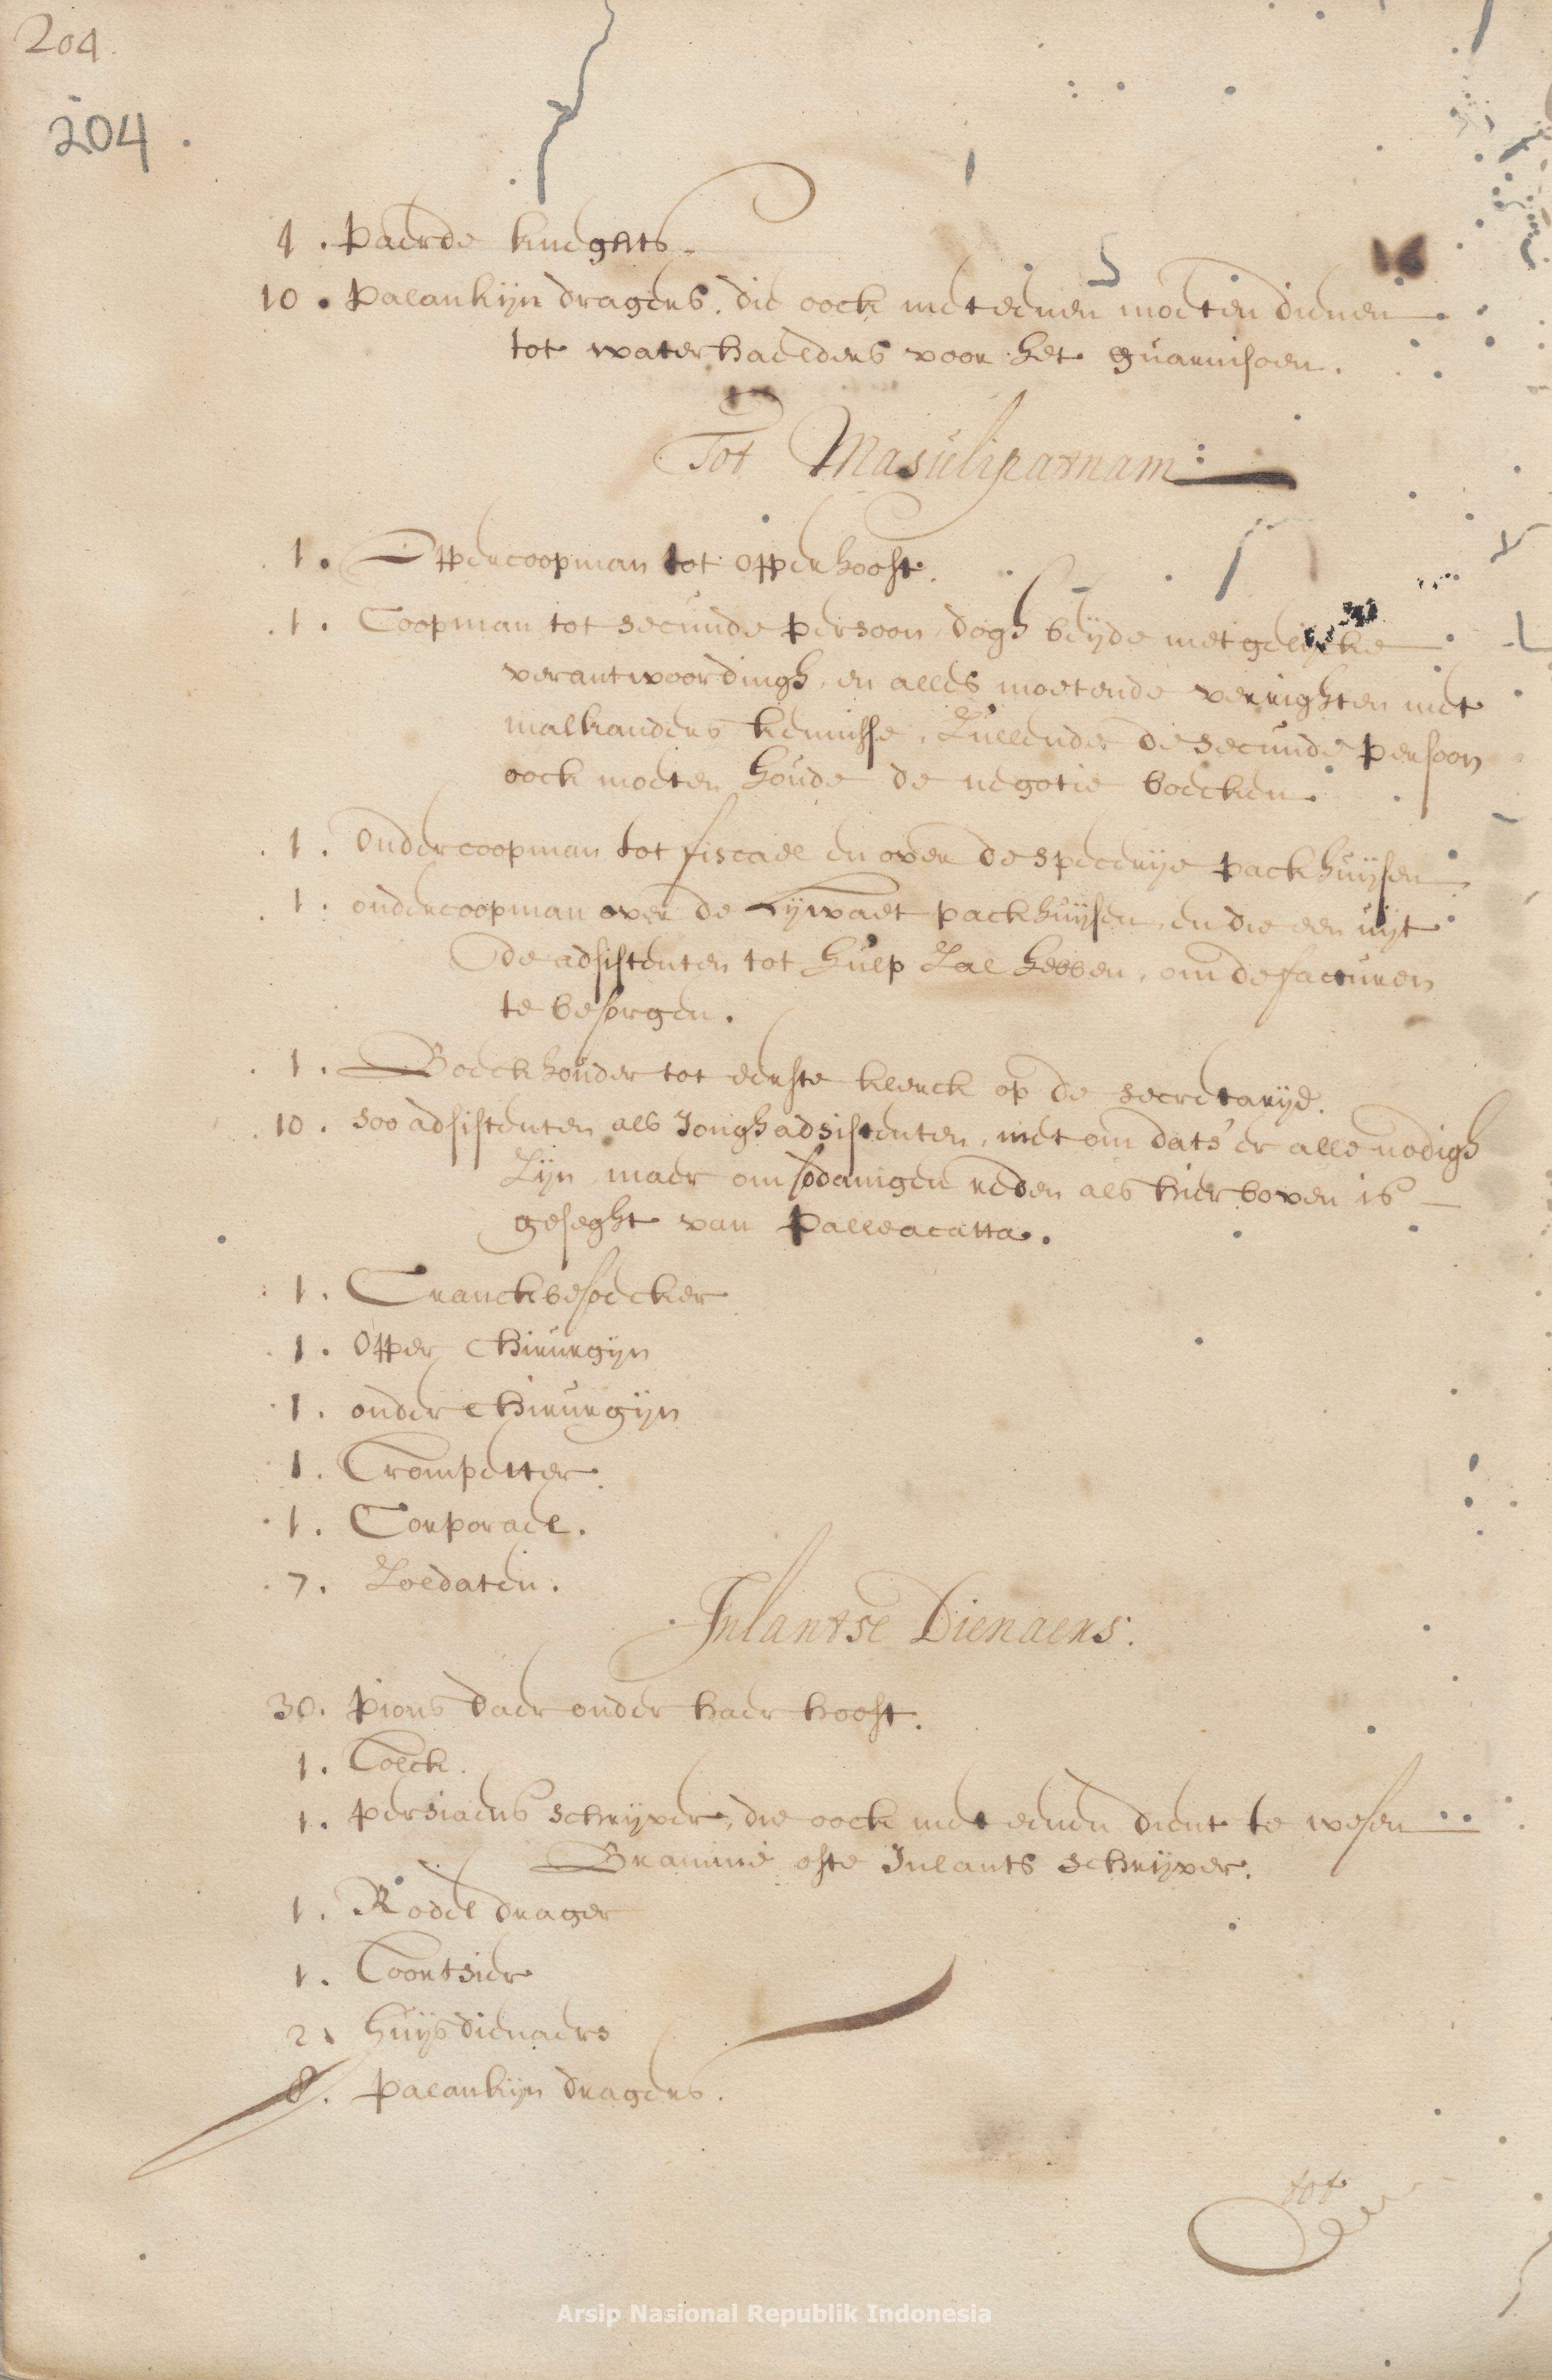 204.
204.
4. Paerde kneghts.
10. Palankijn dragers, die oock met eenen moeten dienen
tot waterhaelders voor het guarnisoen.
Tot Masulipatnam:
1. Oppercoopman tot opperhooft.
1. Coopman tot secunde persoon, dogh beijde met gelijcke
verantwoordingh, en alles moetende verrighten met
malkanders kennisse, Zullende de secunde persoon
oock moeten houde de negotie boecken.
1. Ondercoopman tot fiscael en over de specerije packhuijsen
1. ondercoopman over de Lijwaet packhuijsen, en die een uijt
de adsistenten tot hulp Zal hebben, om de facturen
te besorgen.
1. Boeckhouder tot eerste klerck op de secretarije.
10. soo adsistenten als Jongh adsistenten, niet om dats' er alle nodigh
Zijn maer om sodanigen reden als hier boven is
geseght van Palleacatta.
1. Cranckbesoecker
1. Opper Chirurgijn
1. onder Chirurgijn
1. Trompetter.
1. Corporael.
7. Zoldaten.
Inlantse Dienaers.
30. pions daer onder haer hooft.
1. Tolck.
1. persiaens schrijver, die oock met eenen dient te wesen
Bramine ofte Inlants schrijver.
1. Rodel drager
1. Toortsier
2. huijs dienaers
8. palankijn dragers.
tot
Arsip Nasional Republik Indonesia